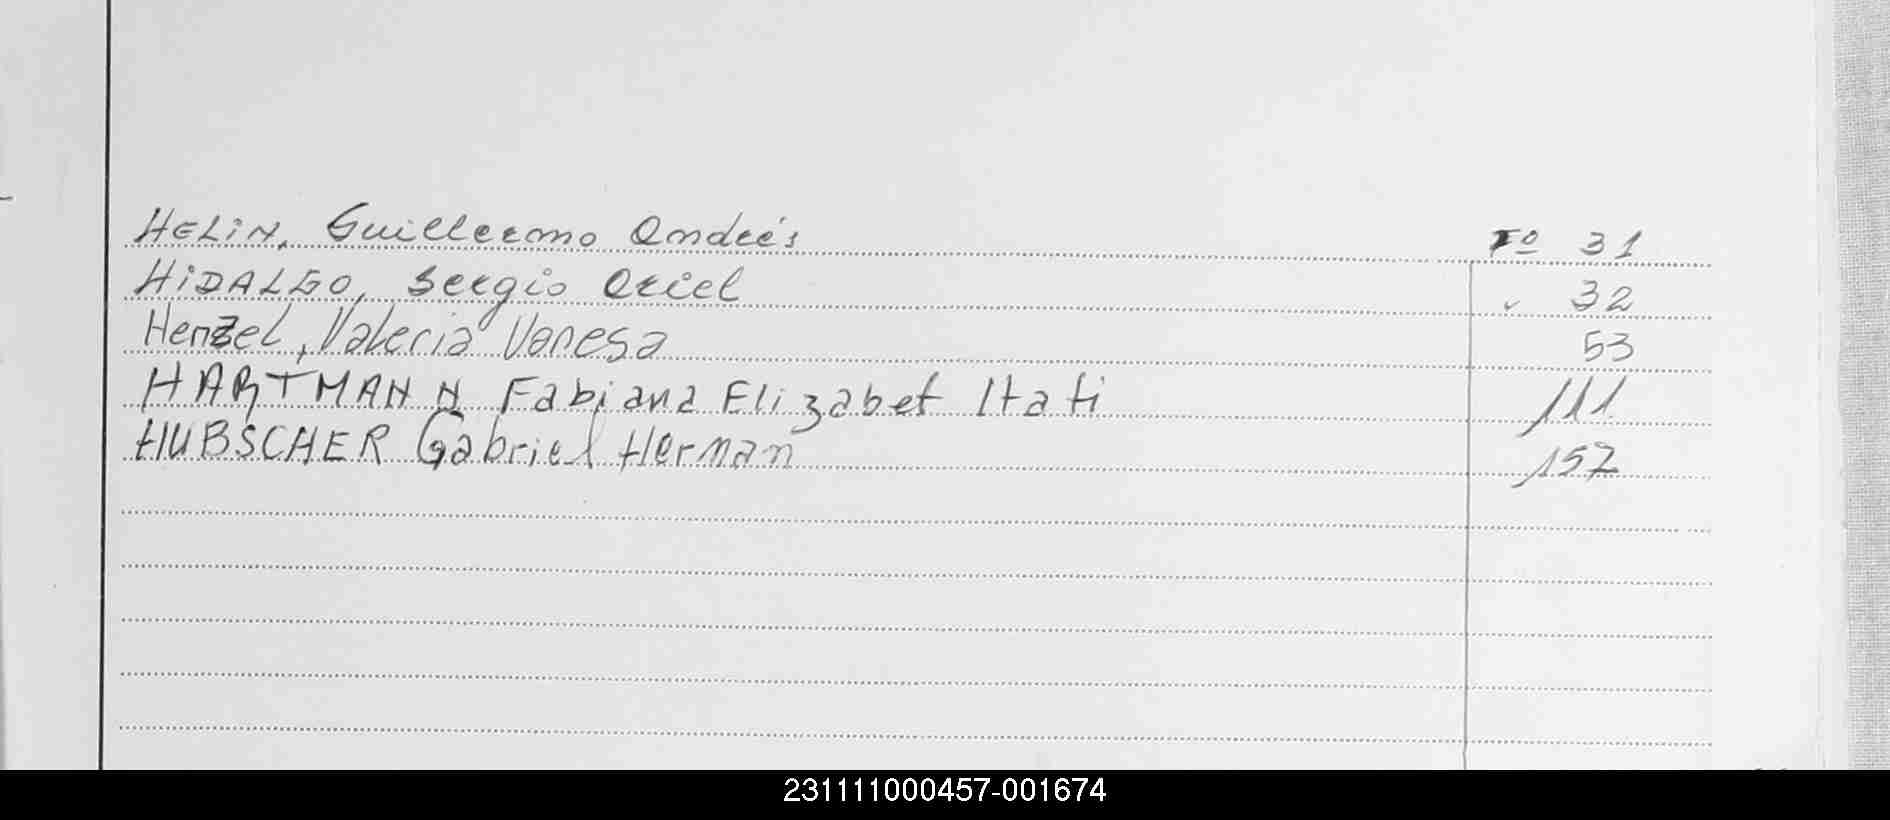 HELIN, Guillermo Andrés Fº 31
HIDALGO, Sergio Oriel " 32
Henzel, Valeria Vanesa 53
HARTMANN Fabiana Elizabet Itati 111
HUBSCHER Gabriel Herman 157
231111000457-001674